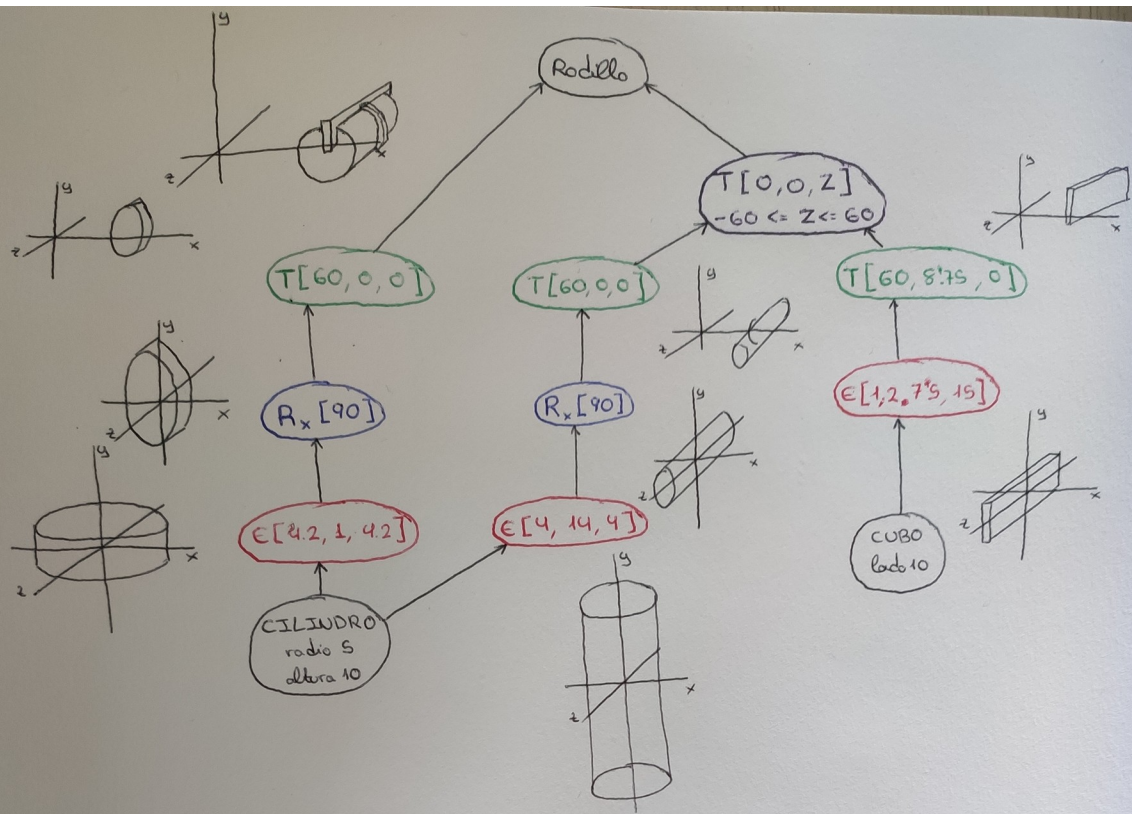 Rodillo
T[0,0,Z]
-60 <= Z <= 60
T[60,0,0]
T[60,0,0]
T[60,8'75,0]
Rx[90]
Rx[90]
E[1,2.7's,15]
E[4.2,1,4.2]
E[4,14,4]
CUBO
lado 10
CILINDRO
radio 5
altura 10
y
z
x
y
z
x
y
z
x
y
z
x
y
z
x
y
z
x
y
z
x
y
z
x
y
z
x